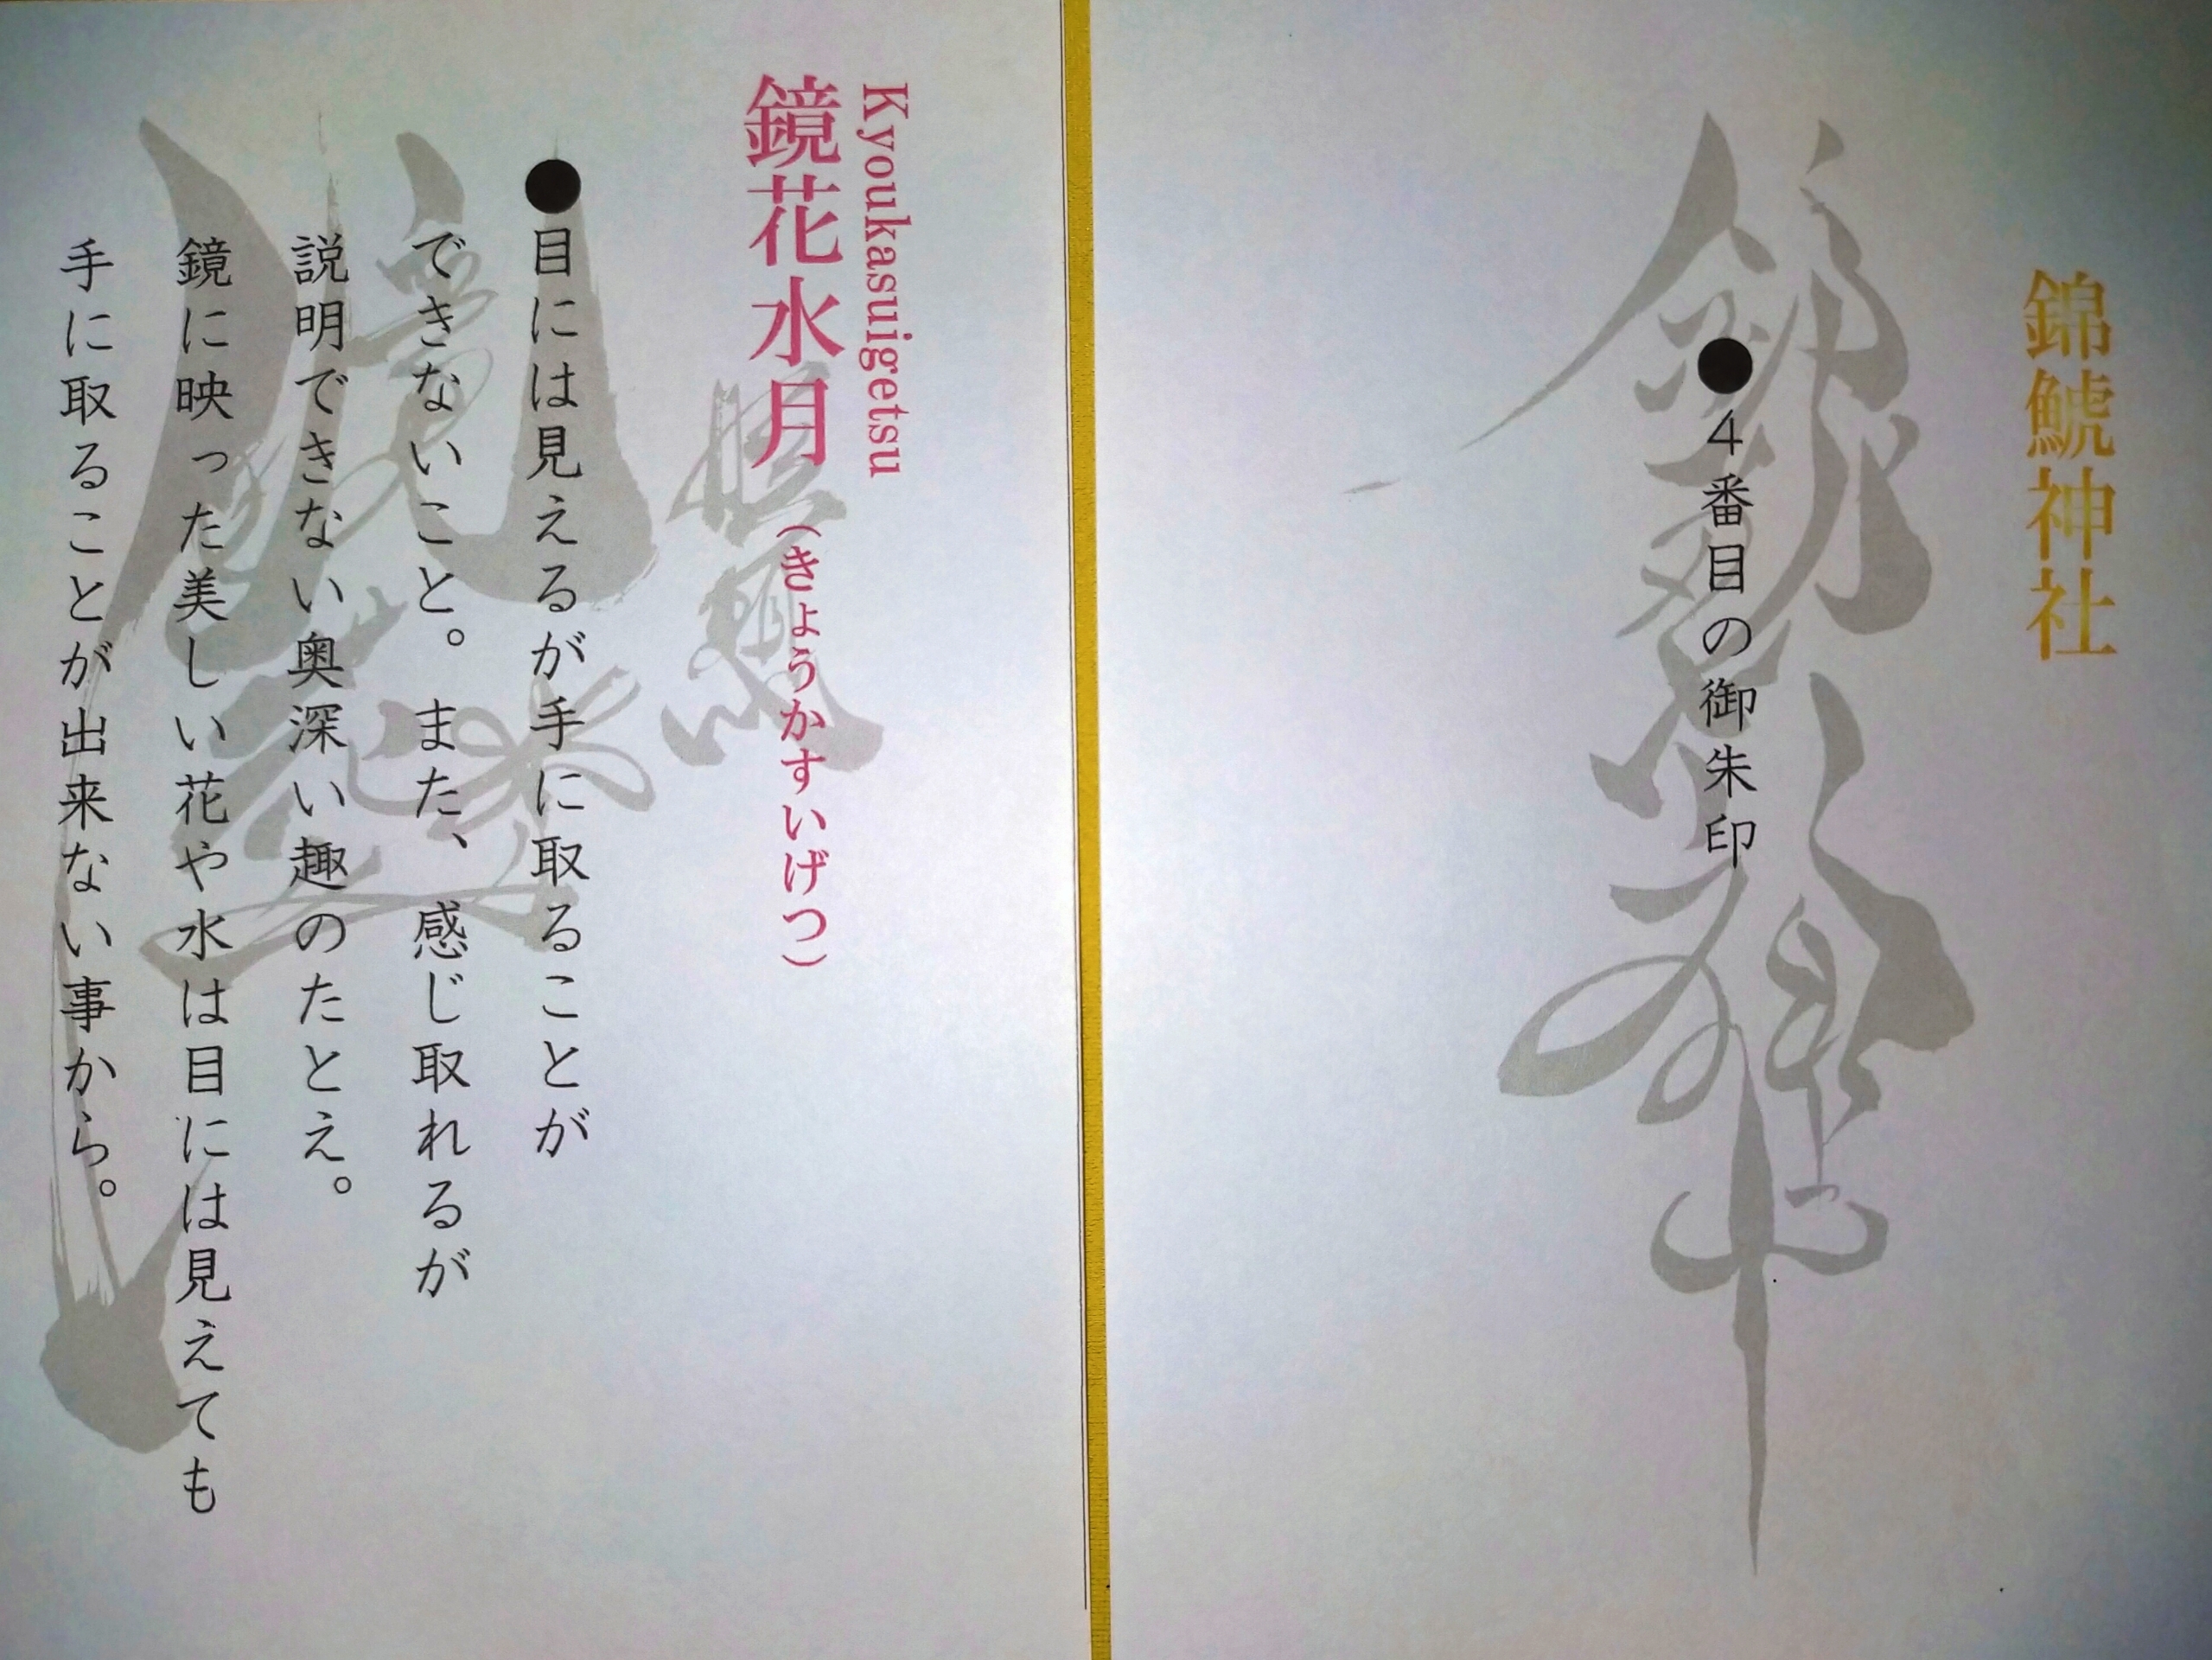 錦鯱神社
●4番目の御朱印
Kyoukasuigetsu
鏡花水月（きょうかすいげつ）
●目には見えるが手に取ることが
できないこと。また、感じ取れるが
説明できない奥深い趣のたとえ。
鏡に映った美しい花や水は目には見えても
手に取ることが出来ない事から。